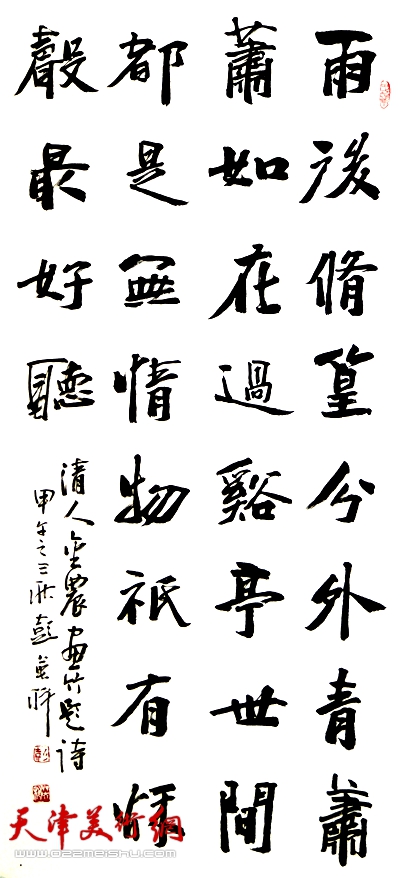 雨後脩篁分外青蕭
蕭如在過谿亭世間
都是無情物祇有秋
聲最好聽
清人金農畫竹題詩
甲午之三秋彭英科
天津美術網
www.022meishu.com